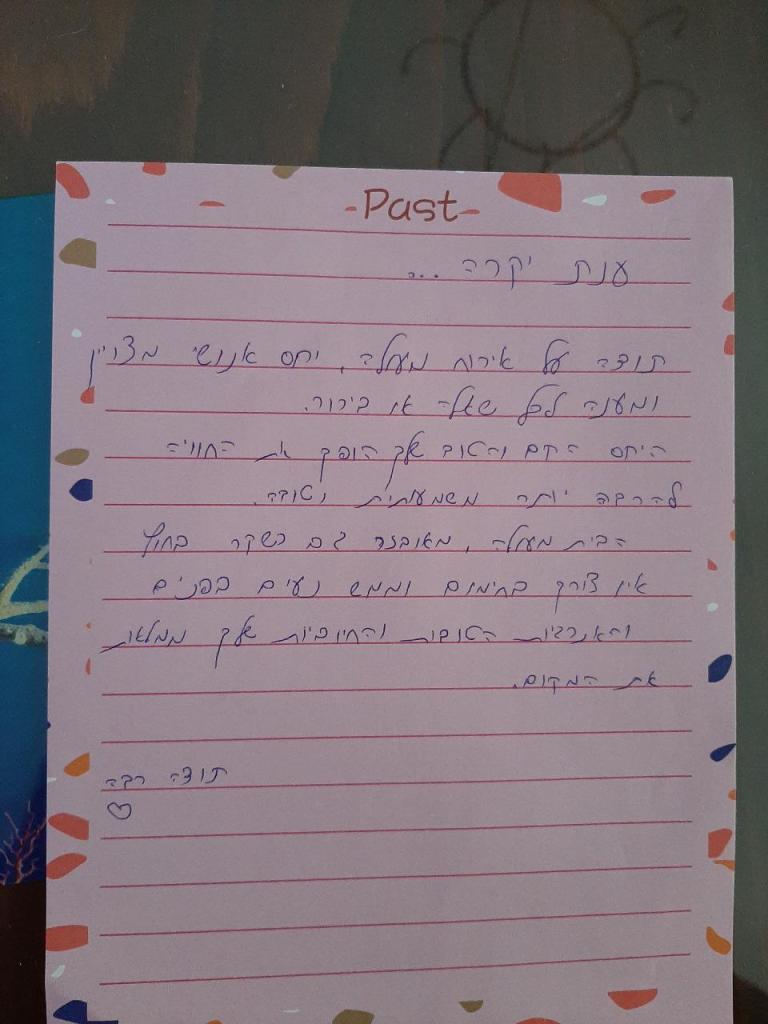 -Past-
ענת יקרה ...
תודה על אירוח מעולה, יחס אנושי מצויין
ומענה לכל שאלה או בירור.
היחס החם והטוב שלך הופך את החוויה
להרבה יותר משמעותית וטובה.
הבית מעולה, מאובזר גם כשקר בחוץ
אין צורך בחימום וממש נעים בפנים
והאנרגיות הטובות והחיוביות שלך ממלאות
את המקום.
תודה רבה
♡